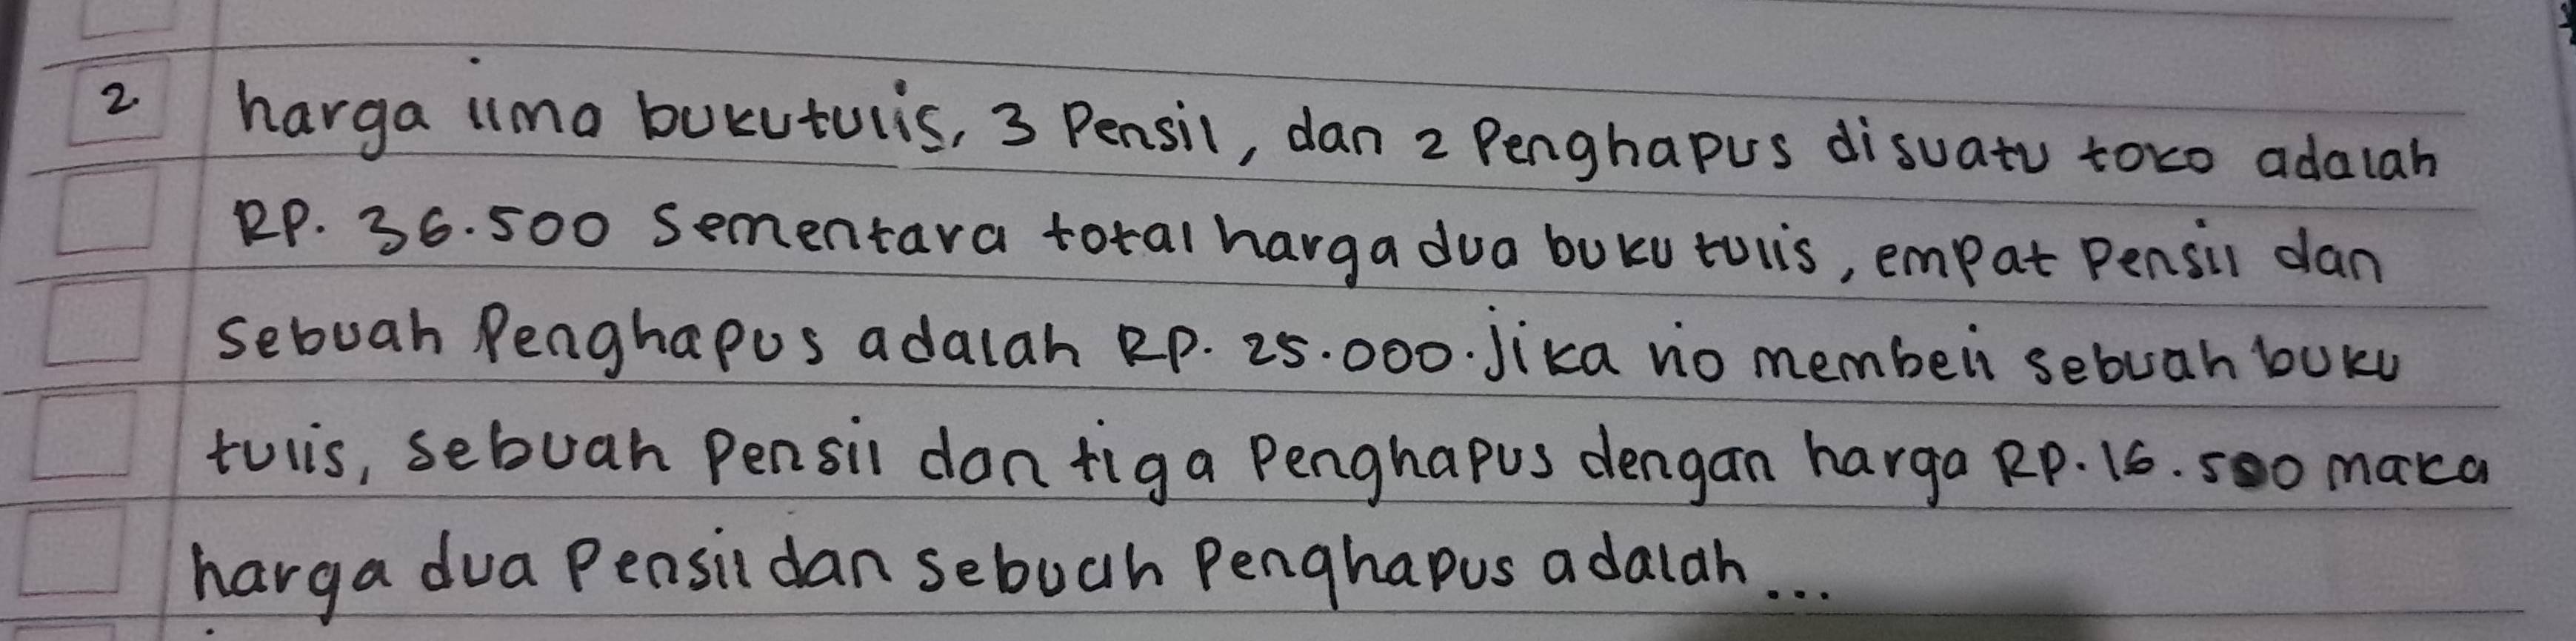 2. harga lima buku tulis, 3 Pensil, dan 2 Penghapus disuatu toko adalah
RP. 36.500 sementara total harga dua buku tulis, empat Pensil dan
sebuah Penghapus adalah RP. 25.000. jika rio membeli sebuah buku
tulis, sebuah Pensil dan tiga Penghapus dengan harga RP. 16.500 maka
harga dua Pensil dan sebuah Penghapus adalah...